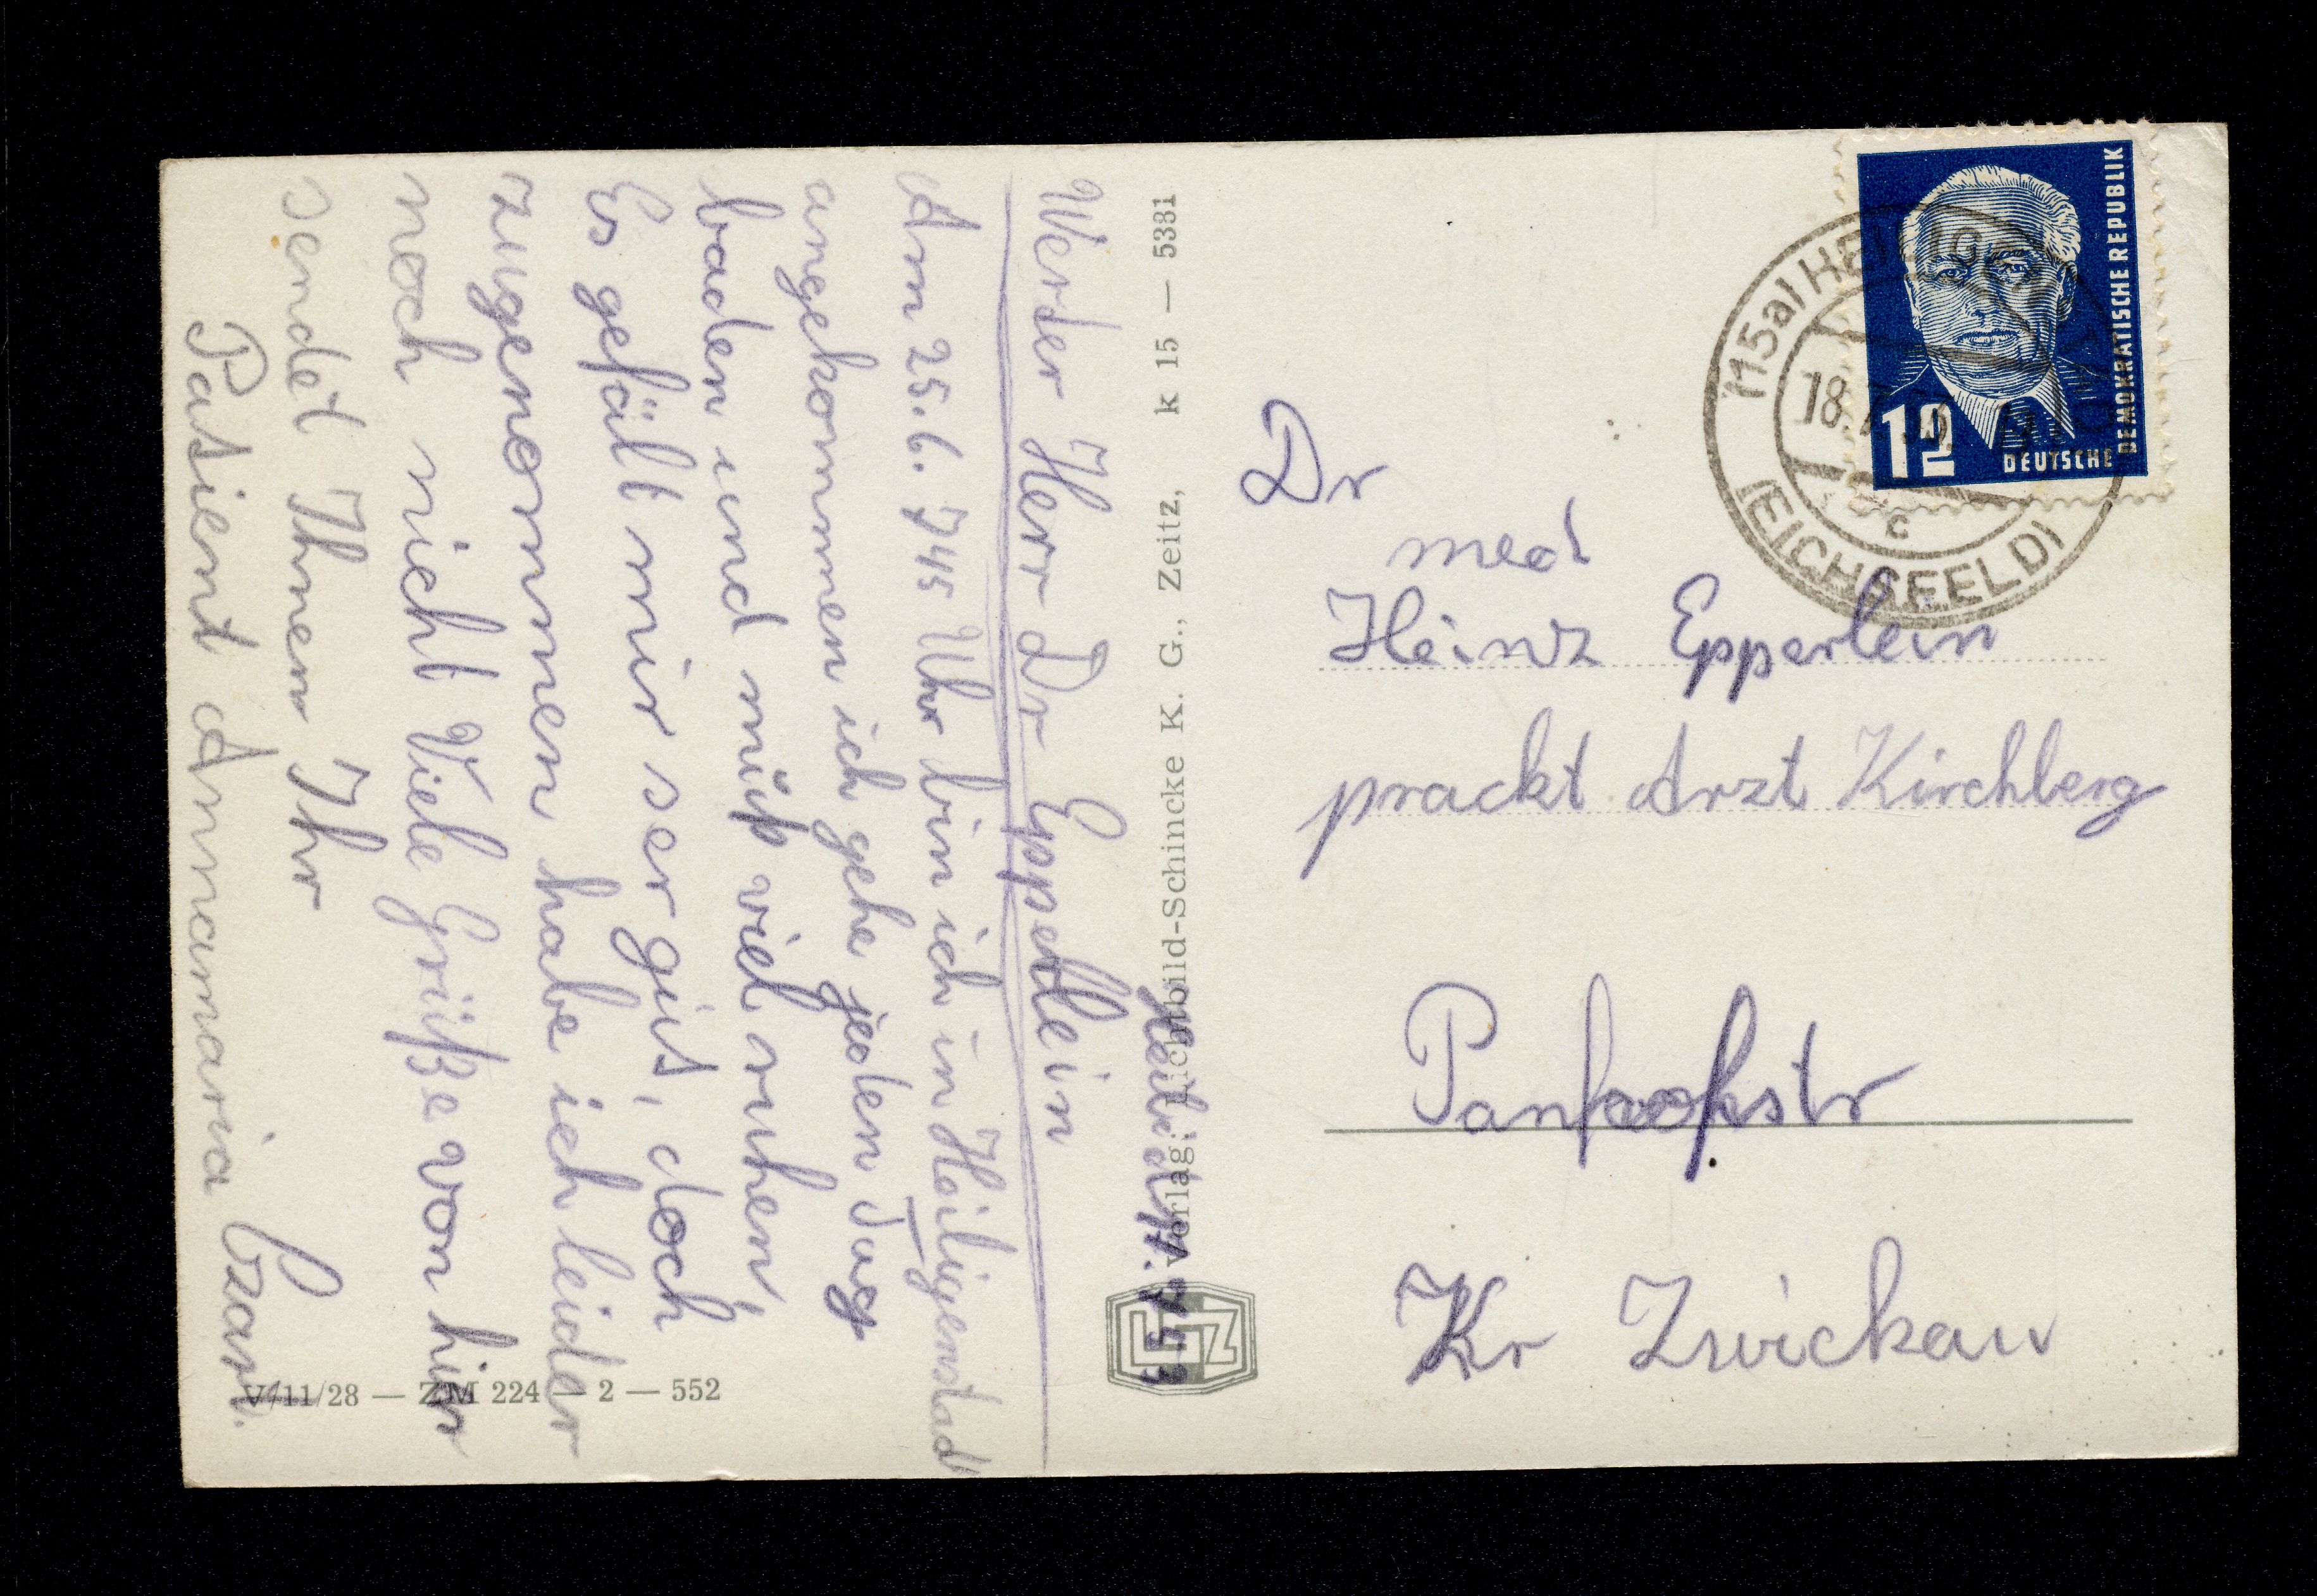 Heilgst.
Werter Herr Dr Epperlein
Am 25.6. 745 Uhr bin ich in Heiligenstad
angekommen ich gehe jeden Tag
baden und muß viel ruhen,
Es gefält mir ser gut, doch
zugenommen habe ich leider
noch nicht Viele Grüße von hier
sendet Ihnen Ihr
Patient Annamaria Czarn.
V/11/28 — ZM 224 — 2 — 552
Verlag: Lichtbild-Schincke K. G., Zeitz, k 15 — 5331
DEUTSCHE DEMOKRATISCHE REPUBLIK
12
(15a) HEILIG
18.7.
c
(EICHSFELD)
Dr
med
Heinz Epperlein
prackt Arzt Kirchberg
Kr Zwickau